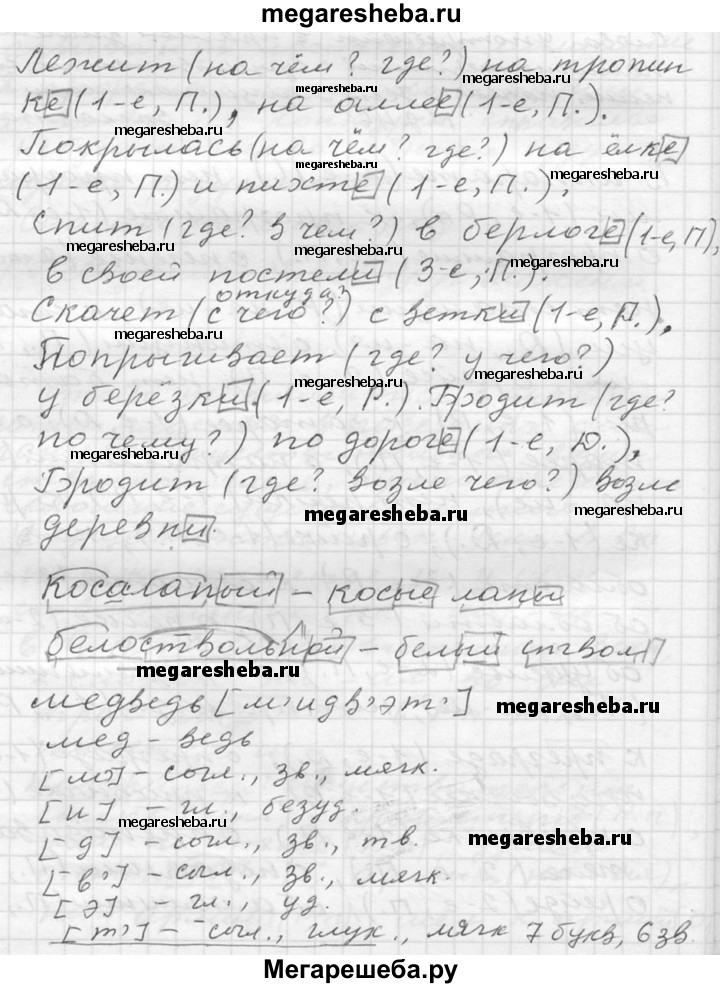 megaresheba.ru
Лежит (на чём? где?) на тропин
ке (1-е, П.), на аллее (1-е, П.).
megaresheba.ru
megaresheba.ru megaresheba.ru
Покрылась (на чём? где?) на ёлке
megaresheba.ru
(1-е, П.) и пихте (1-е, П.),
Спит (где? в чем?) в берлоге (1-е, П),
megaresheba.ru megaresheba.ru
в своей постели (3-е, П.).
откуда?
Скачет (с чего?) с ветки (1-е, Р.),
megaresheba.ru
Попрыгивает (где? у чего?)
megaresheba.ru
у берёзки (1-е, Р.). Бродит (где?
по чему?) по дороге (1-е, Д.),
megaresheba.ru megaresheba.ru
Бродит (где? возле чего?) возле
megaresheba.ru megaresheba.ru
деревни.
косалапый – косые лапы
белоствольной – белый ствол
megaresheba.ru
медведь [м'идв'эт'] megaresheba.ru
мед - ведь
[м'] – согл., зв., мягк.
[и] – гл., безуд.
megaresheba.ru
[д] – согл., зв., тв. megaresheba.ru
[в'] – согл., зв., мягк.
megaresheba.ru
[э] – гл., уд.
[т'] – согл., глух., мягк 7 букв, 6 зв.
Мегарешеба.ру